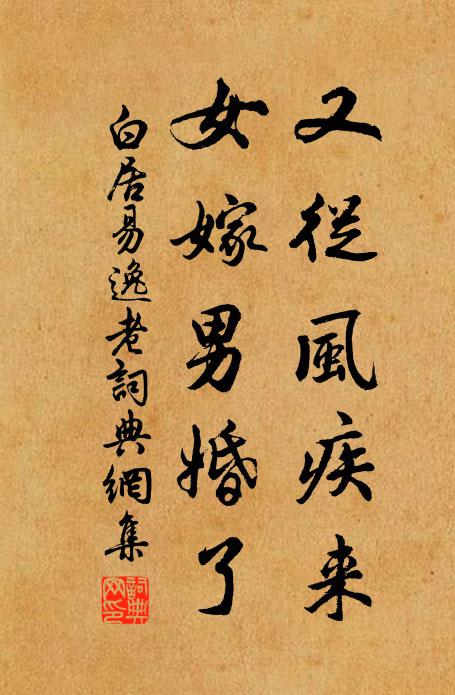 又從風疾来
女嫁男婚了
白居易逸老詞典網集
詞典網印